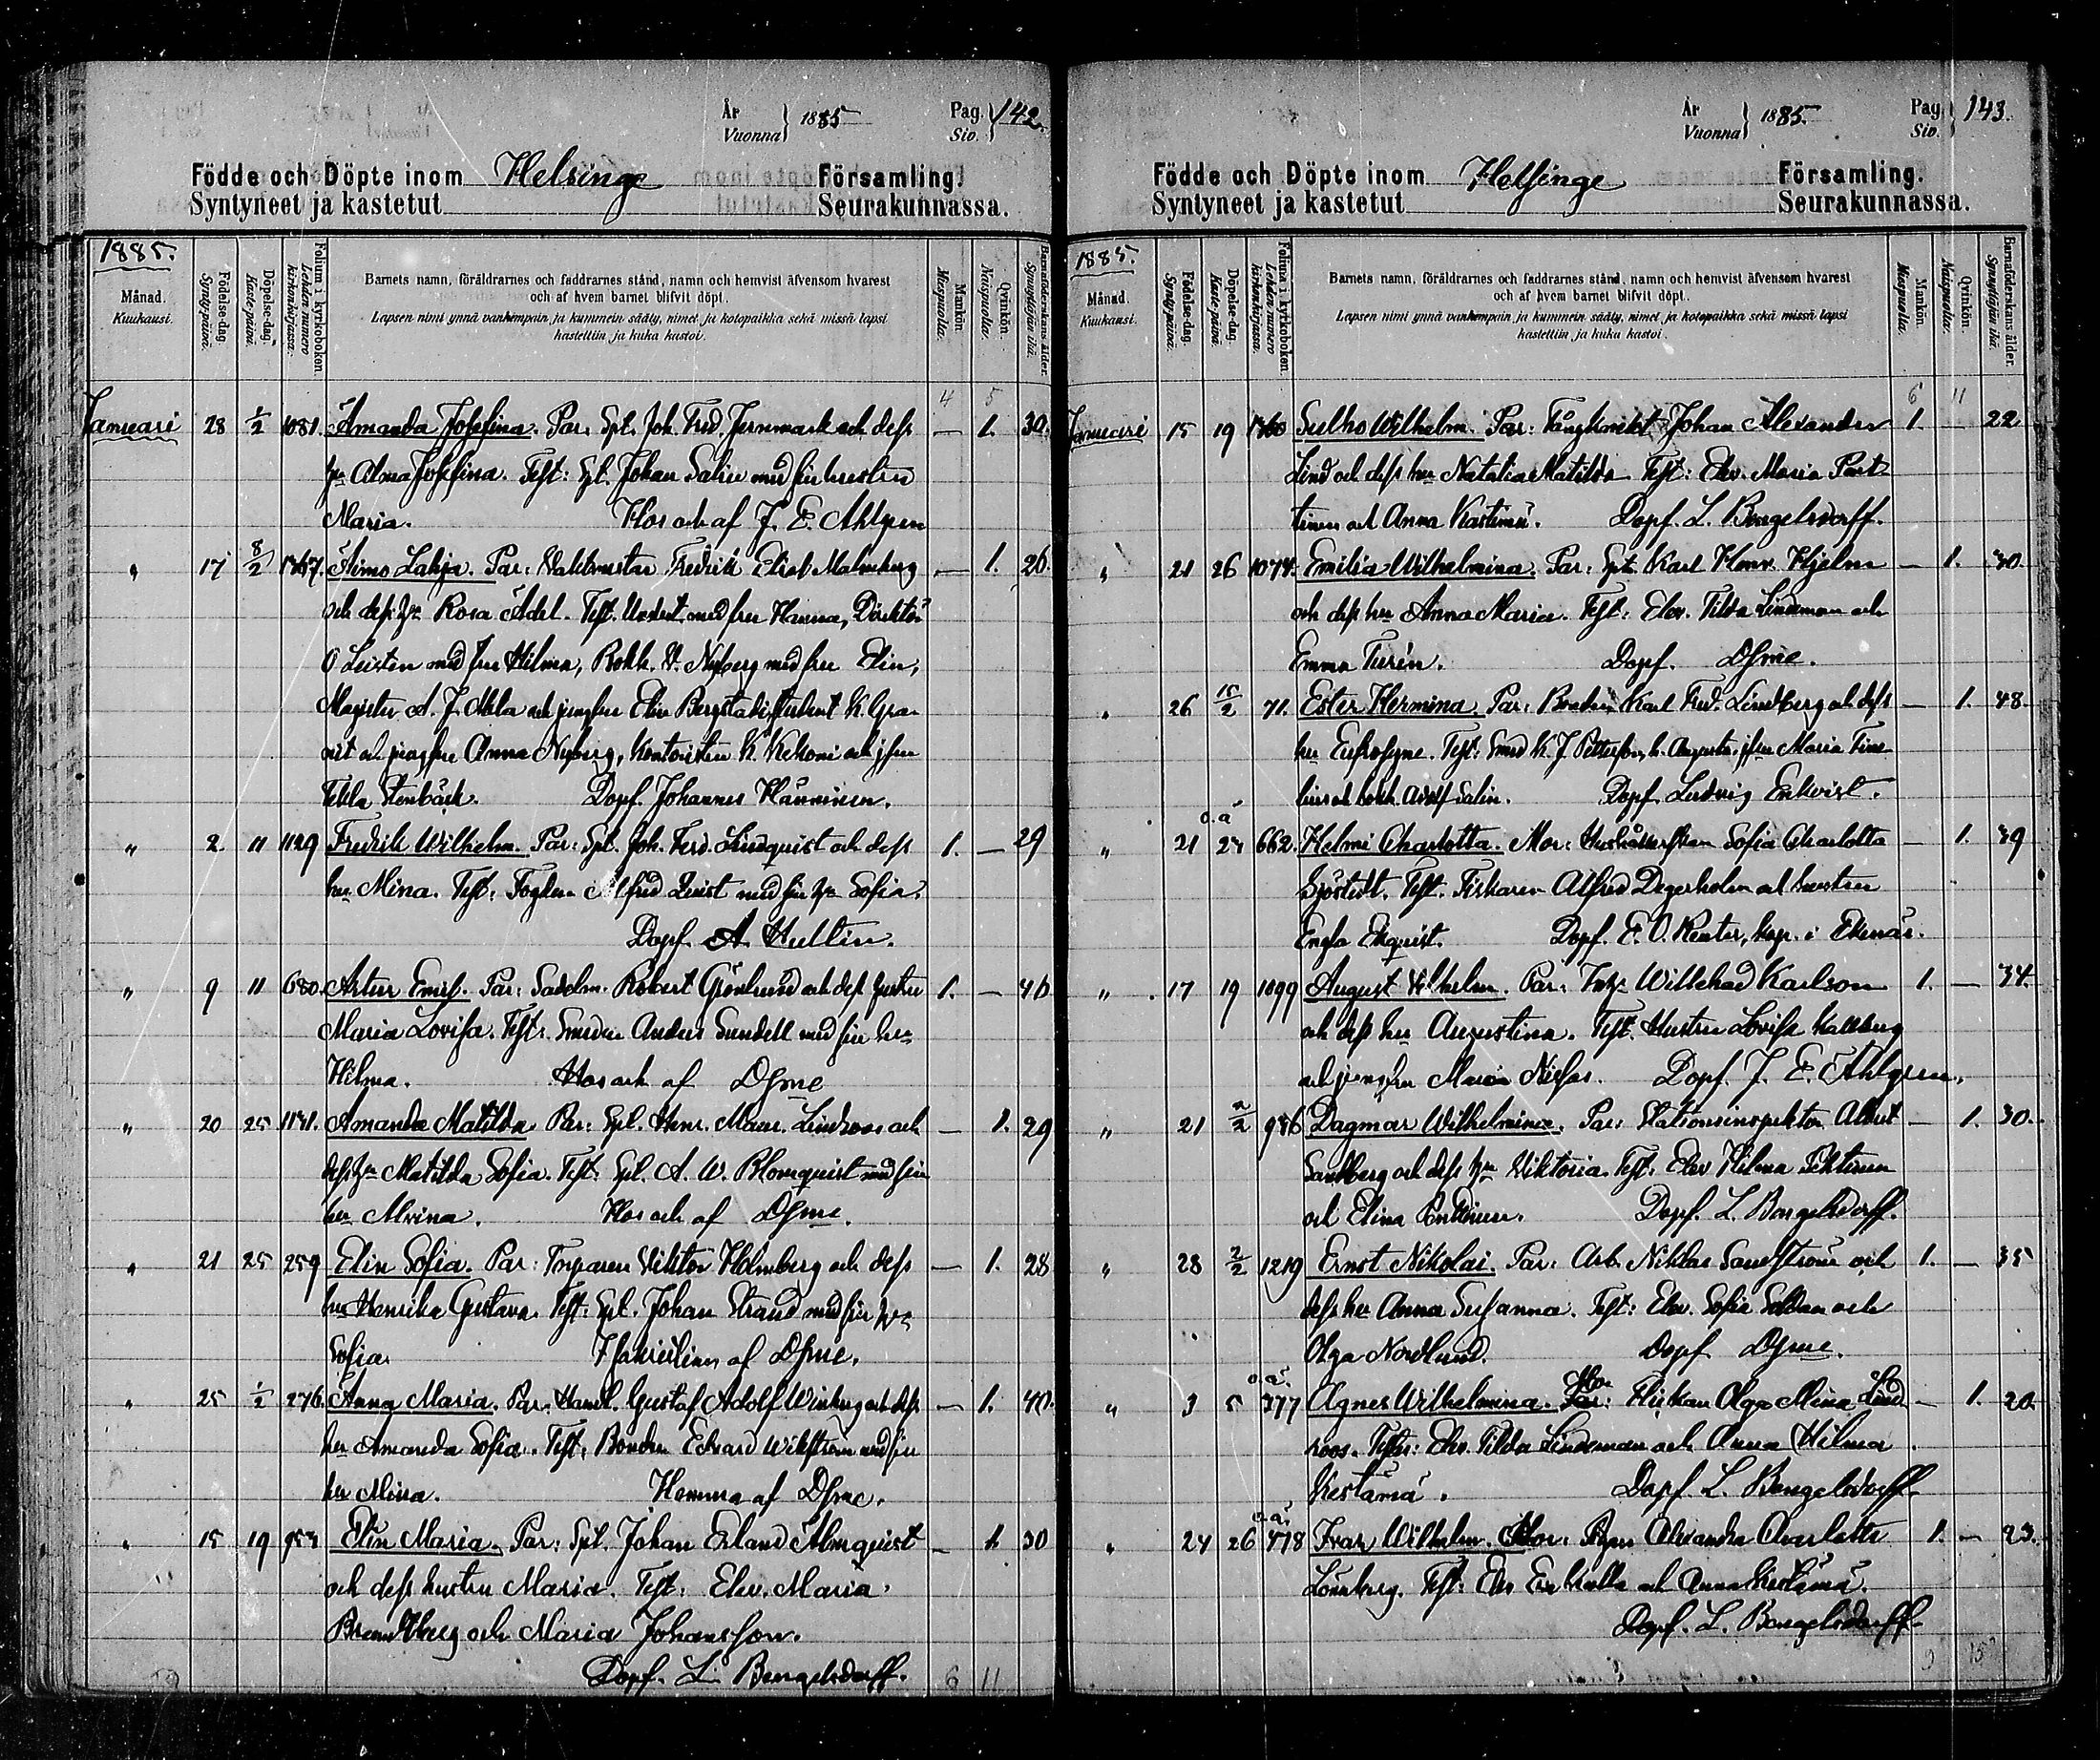 År
Vuonna
1885
Pag.
Siv.
142.
Födde och Döpte inom Helsinge Församling.
Syntyneet ja kastetut Seurakunnassa.
1885.
Månad.
Kuukausi.
Födelse-dag.
Synty-päivä.
Döpelse-dag.
Kaste-päivä.
Folium i kyrkoboken.
Lehden numero kirkonkirjassa.
Barnets namn, föräldrarnes och faddrarnes stånd, namn och hemvist äfvensom hvarest
och af hvem barnet blifvit döpt.
Lapsen nimi ynnä vanhempain ja kummein sääty, nimet ja kotopaikka sekä missä lapsi
kastettiin ja kuka kastoi.
Mankön.
Miespuolia.
Qvinkön.
Naispuolia.
Barnaföderskans ålder.
Synnyttäjän ikä.
4 5
Januari 28 1/2 1081. Amanda Josefina. Par: Spl. Joh. Fred. Jernmark och dess — 1. 30.
hu Alma Josefina. Test: Spl. Johan Salin med sin hustru
Maria. Hos och af J. E. Ahlgren
" 17 8/2 1367. Aimo Lahja. Par: Vaktmästar Fredrik Elis Malmberg — 1. 26.
och dess hu Rosa Adel. Test. med fru Hanna, Direktör
O Leisten med fru Hilma, Bokh. W. Nyberg med fru Elin,
Magister A. J. och jungfru Elin Bergstadi, Student K. Gra-
nit och jungfru Anna Nyberg, Kontoristen K. Kekoni och jfru
Tekla Stenbäck. Döpf. Johannes Hänninen.
" 2. 11 1129 Fredrik Wilhelm. Par: Spl. Joh. Ferd. Lindquist och dess 1. — 29
hu Mina. Test: Alfred Qvist med sin hu Sofia.
Döpf. A. Hultin.
" 9 11 680. Artur Emil. Par: Sadelm. Robert Grönlund och dess hustru 1. — 40
Maria Lovisa. Test: Smeden Anders Sundell med sin hu
Hilma. Hos och af Dsme
" 20 25 1141. Amanda Matilda. Par: Spl. Henr. Maur. Lindroos och — 1. 29
dess hu Matilda Sofia. Test: Spl. A. W. Blomquist med sin
hu Alvina. Hos och af Dsme.
" 21 25 259 Elin Sofia. Par: Torparen Viktor Holmberg och dess — 1. 28
hu Henrika Gustava. Test: Spl. Johan Strand med sin hu
Sofia. af Dsme.
" 25 1/2 276. Anna Maria. Par: Gustaf Adolf Winberg och dess — 1. 40.
hu Amanda Sofia. Test: Bonden Edvard Wikström med sin
hu Mina. Hemma af Dsme.
" 15 19 953 Elin Maria. Par: Spl. Johan Erland Almquist — 1. 30
och dess hustru Maria. Test: Elev. Maria
Brandtberg och Maria Johansson.
Döpf. L. Bengelsdorff. 6 11
År
Vuonna
1885.
Pag.
Siv.
143.
Födde och Döpte inom Helsinge Församling.
Syntyneet ja kastetut Seurakunnassa.
1885.
Månad.
Kuukausi.
Födelse-dag.
Synty-päivä.
Döpelse-dag.
Kaste-päivä.
Folium i kyrkoboken.
Lehden numero kirkonkirjassa.
Barnets namn, föräldrarnes och faddrarnes stånd, namn och hemvist äfvensom hvarest
och af hvem barnet blifvit döpt.
Lapsen nimi ynnä vanhempain ja kummein sääty, nimet ja kotopaikka sekä missä lapsi
kastettiin ja kuka kastoi.
Mankön.
Miespuolia.
Qvinkön.
Naispuolia.
Barnaföderskans ålder.
Synnyttäjän ikä.
6 11
Januari 15 19 1360 Sulho Wilhelm. Par: Johan Alexander 1. — 22
Lind och dess hu Natalia Matilda. Test: Elev. Maria Part-
tinen och Anna Kästämä. Döpf. L. Bengelsdorff.
" 21 26 1074. Emilia Wilhelmina. Par: Spl. Karl Henr. Hjelm — 1. 30
och dess hu Anna Maria. Test: Elev. Tilda Lindeman och
Emma Turén. Döpf. Dsme.
" 26 15/2 71. Ester Hermina. Par: Bonden Karl Fred. Lindberg och dess — 1. 48
hu Eufrosyne. Test: Smed K. J. Pettersson, h. Augusta, jfru Maria
och bokh. Adolf Salin. Döpf. Ludvig Enkvist.
o. ä
" 21 27 662. Helmi Charlotta. Mor: Hushållerskan Sofia Charlotta — 1. 39
Sjöstedt. Test. Fiskaren Alfred Degerholm och hustru
Engla Ekquist. Döpf. E. O. Reuter, kap. i Ekenäs.
" 17 19 1099 August Vilhelm. Par: Willehad Karlson 1. — 34.
och dess hu Augustina. Test. Hustru Lovisa Hallberg
och jungfru Maria Döpf. J. E. Ahlgren.
" 21 2/2 986 Dagmar Wilhelmina. Par: Stationsinspektor Albert — 1. 30.
Sandberg och dess hu Viktoria. Test: Elev Hilma
och Elina Döpf. L. Bengelsdorff.
" 28 2/2 1219 Ernst Nikolai. Par: Arb. Niklas Sandström och 1. — 35
dess hu Anna Susanna. Test: Elev. Sofia Soldan och
Olga Nordlund. Döpf Dsme.
o. ä. Mor
" 3 5 377 Agnes Wilhelmina. Par: Flickan Olga Mina Lind — 1. 20
roos. Test: Elev. Tilda Lindeman och Anna Hilma
Kestämä. Döpf. L. Bengelsdorff
o. ä.
" 24 26 478 Ivar Wilhelm. Mor: Pigan Alexandra Charlotta 1. — 23.
Lönnberg. Test: Elev och Anna Kestämä.
Döpf. L. Bengelsdorff